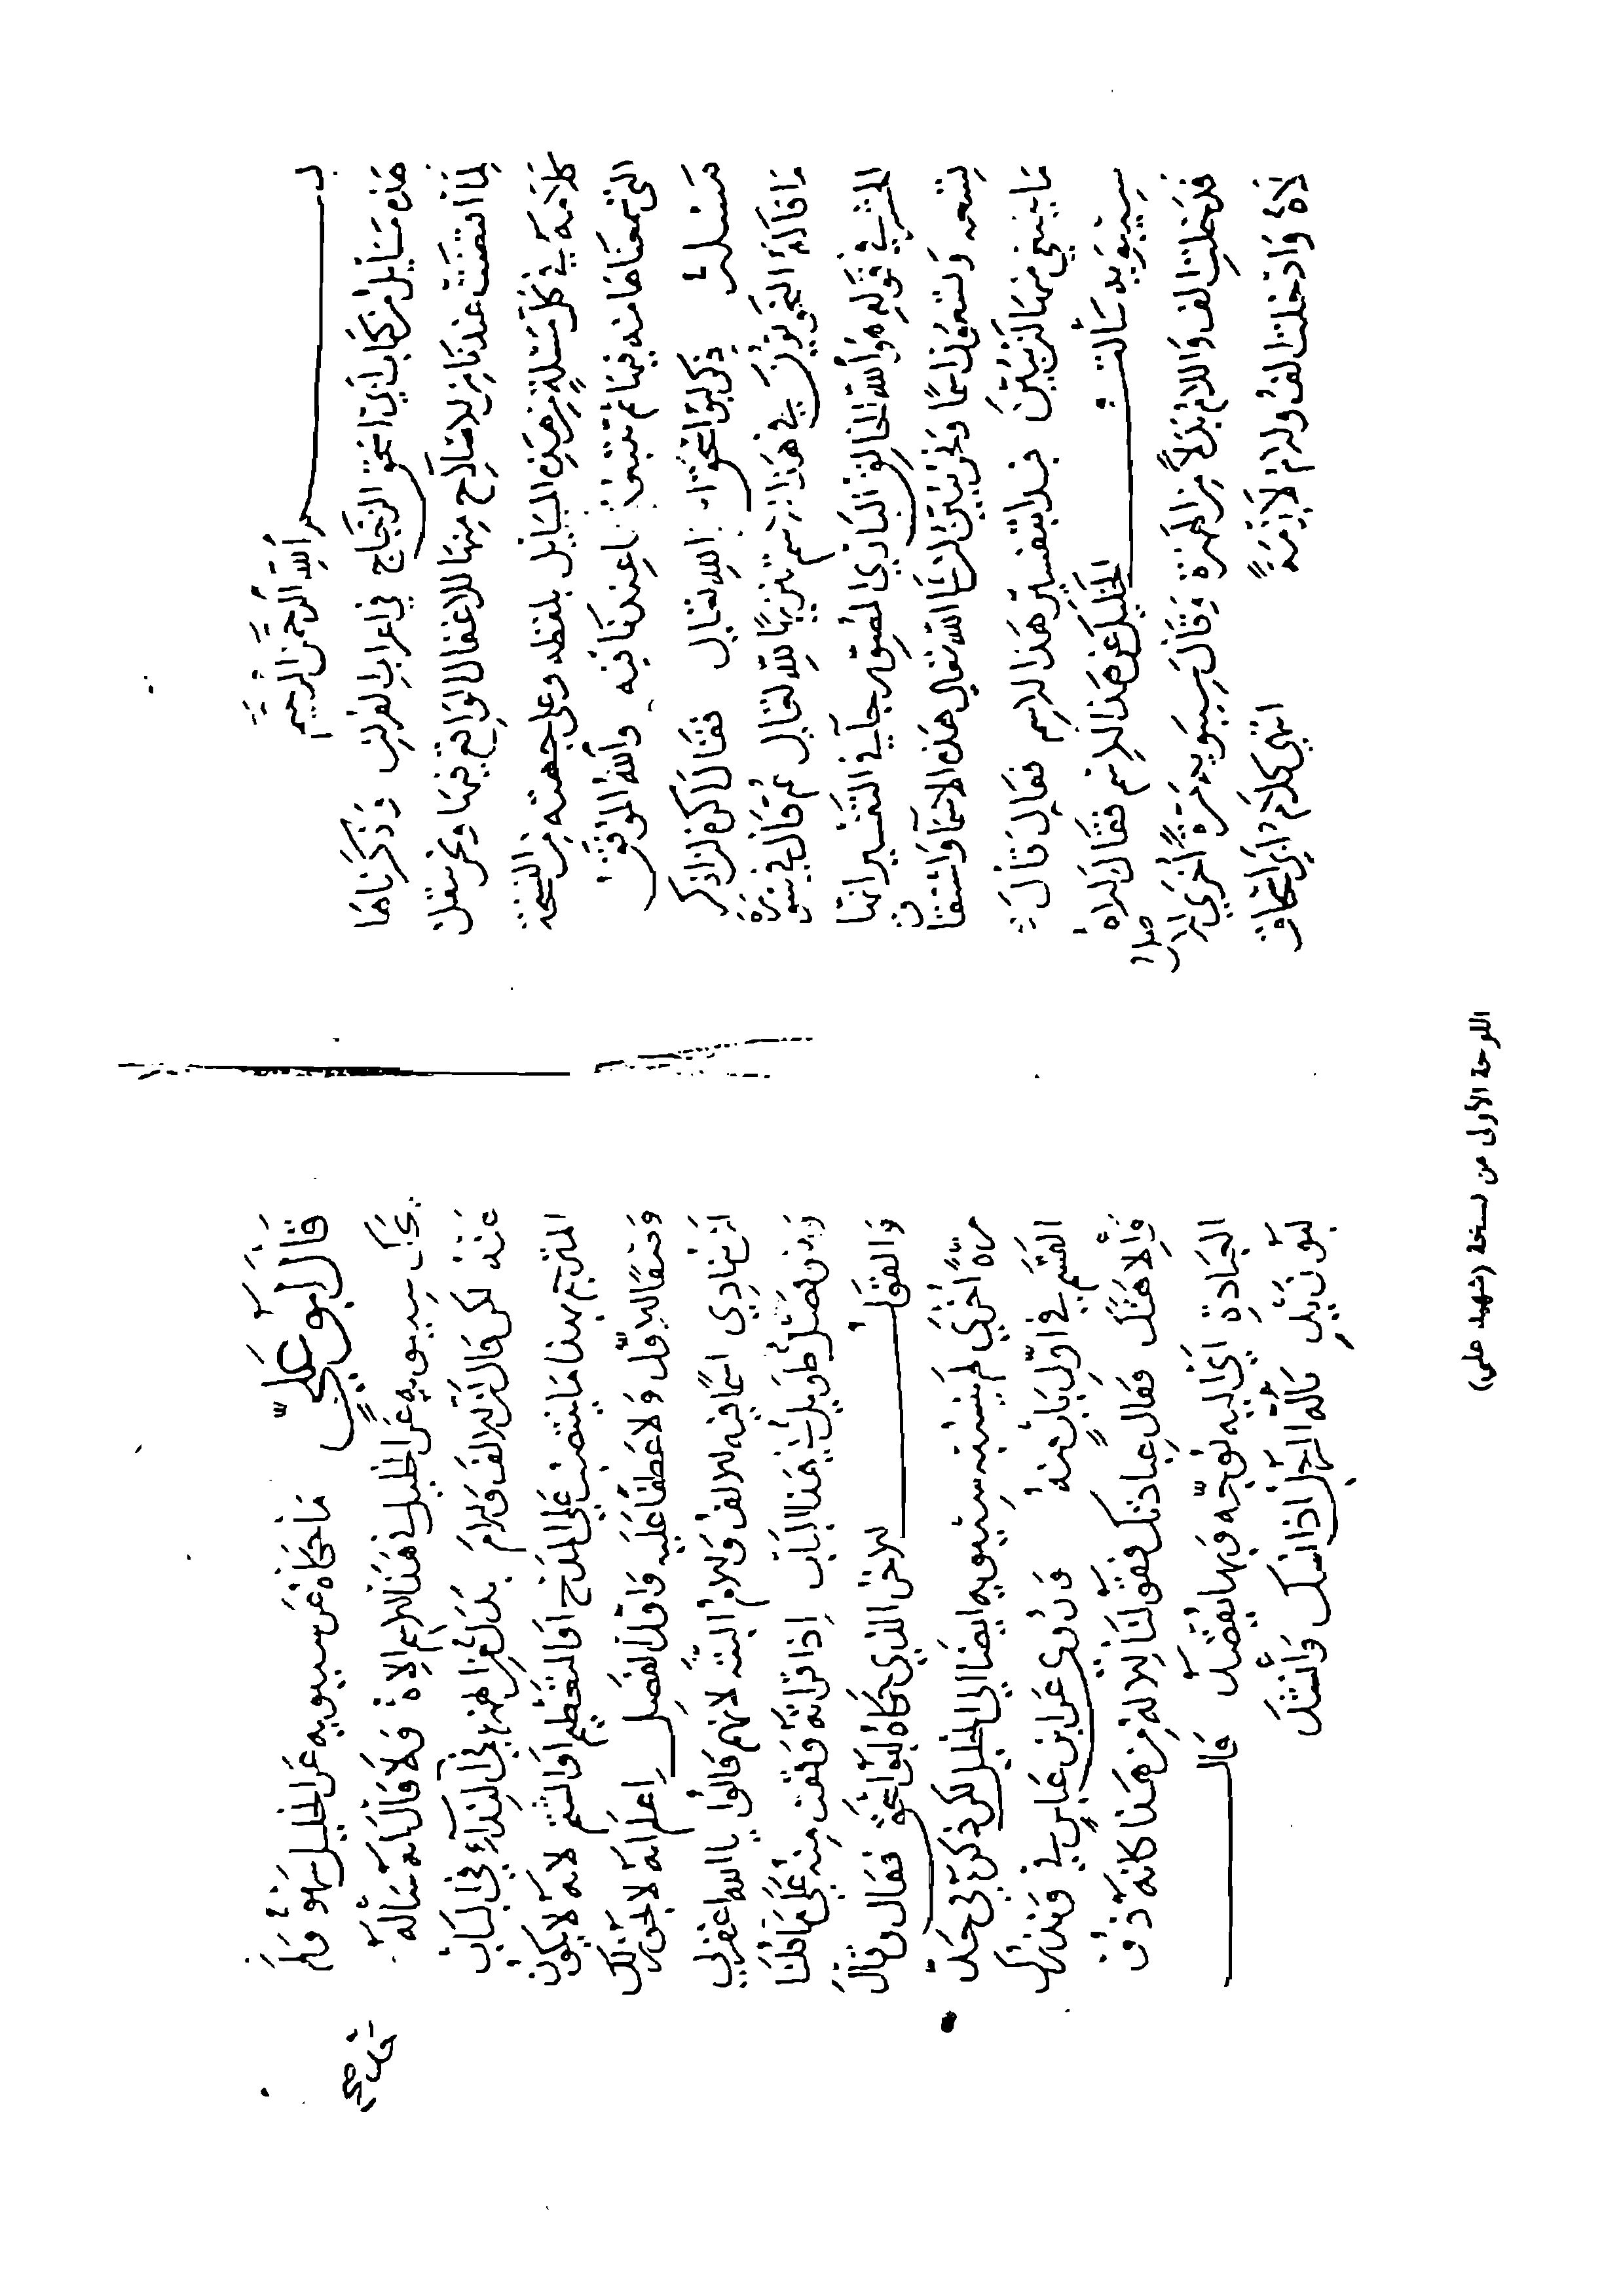 بسم الله الرحمن الرحيم
هذه مسائل من كتاب أبي إسحق الزجاج في إعراب القرآن ذكرناها
لما اقتضت عندنا من الإصلاح منها للإغفال الواقع فيها ونحن ننقل
كلامه في كل مسئلة من هذه المسائل بلفظه وعلى جهته من النسخة
التي سمعناها منه فيها ثم نتبعه ما عندنا فيه والله الموفق
مسئلة ذكر أبو إسحق الله تعالى فقال أكره أن أذكر
ما قاله النحويون في هذا الاسم تنزيها لله تعالى ثم قال في سورة
الحشر في قوله هو الله الخالق البارئ المصور جاء في التفسير أنها
تسعة وتسعون اسما ونحن نبين إن شاء الله تعالى هذه الأسماء واشتقاق
ما ينبغي منها أن نبين فبدأ بتفسير هذا الاسم فقال قال
سيبويه سألت الخليل عن هذا الاسم فقال إلاه
فأدخلت الألف واللام بدلا من الهمزة وقال سيبويه مرة أخرى الأصل
لاه وأدخلت الألف ولام لازمة انتهى كلام أبي إسحاق
قال أبو علي ما حكاه عن سيبويه عن الخليل سهو ولم
يحك سيبويه عن الخليل في هذا الاسم إلاه ولا قال إنه سأله
عنه لكن قال إن الألف واللام بدل من الهمزة في النداء في الباب
المترجم هذا ما ينتصب على المدح أو التعظيم أو الشتم لأنه لا يكون
وصفا للأول ولا عطفا عليه وأول الفصل اعلم أنه لا يجوز لك
أن تنادي اسما فيه الألف واللام البتة لأنهم قالوا يا الله اغفر لي
وهو فصل طويل في هذا الباب إذا قرأته وقفت منه على ما قلنا
والقول الآخر الذي حكاه أبو إسحق فقال وقال
مرة أخرى لم ينسبه سيبويه أيضا إلى الخليل لكن ذكره في حد
القسم في أول باب منه وروي عن ابن عباس في قوله
وإلاهتك فقال عبادتك فقولنا إلاه من هذا كأنه ذو
العبادة أي إليه توجه وبها يقصد قال
أبو زيد تأله الرجل إذا نسك وأنشد
اللوحة الأولى من نسخة (شهيد علي)